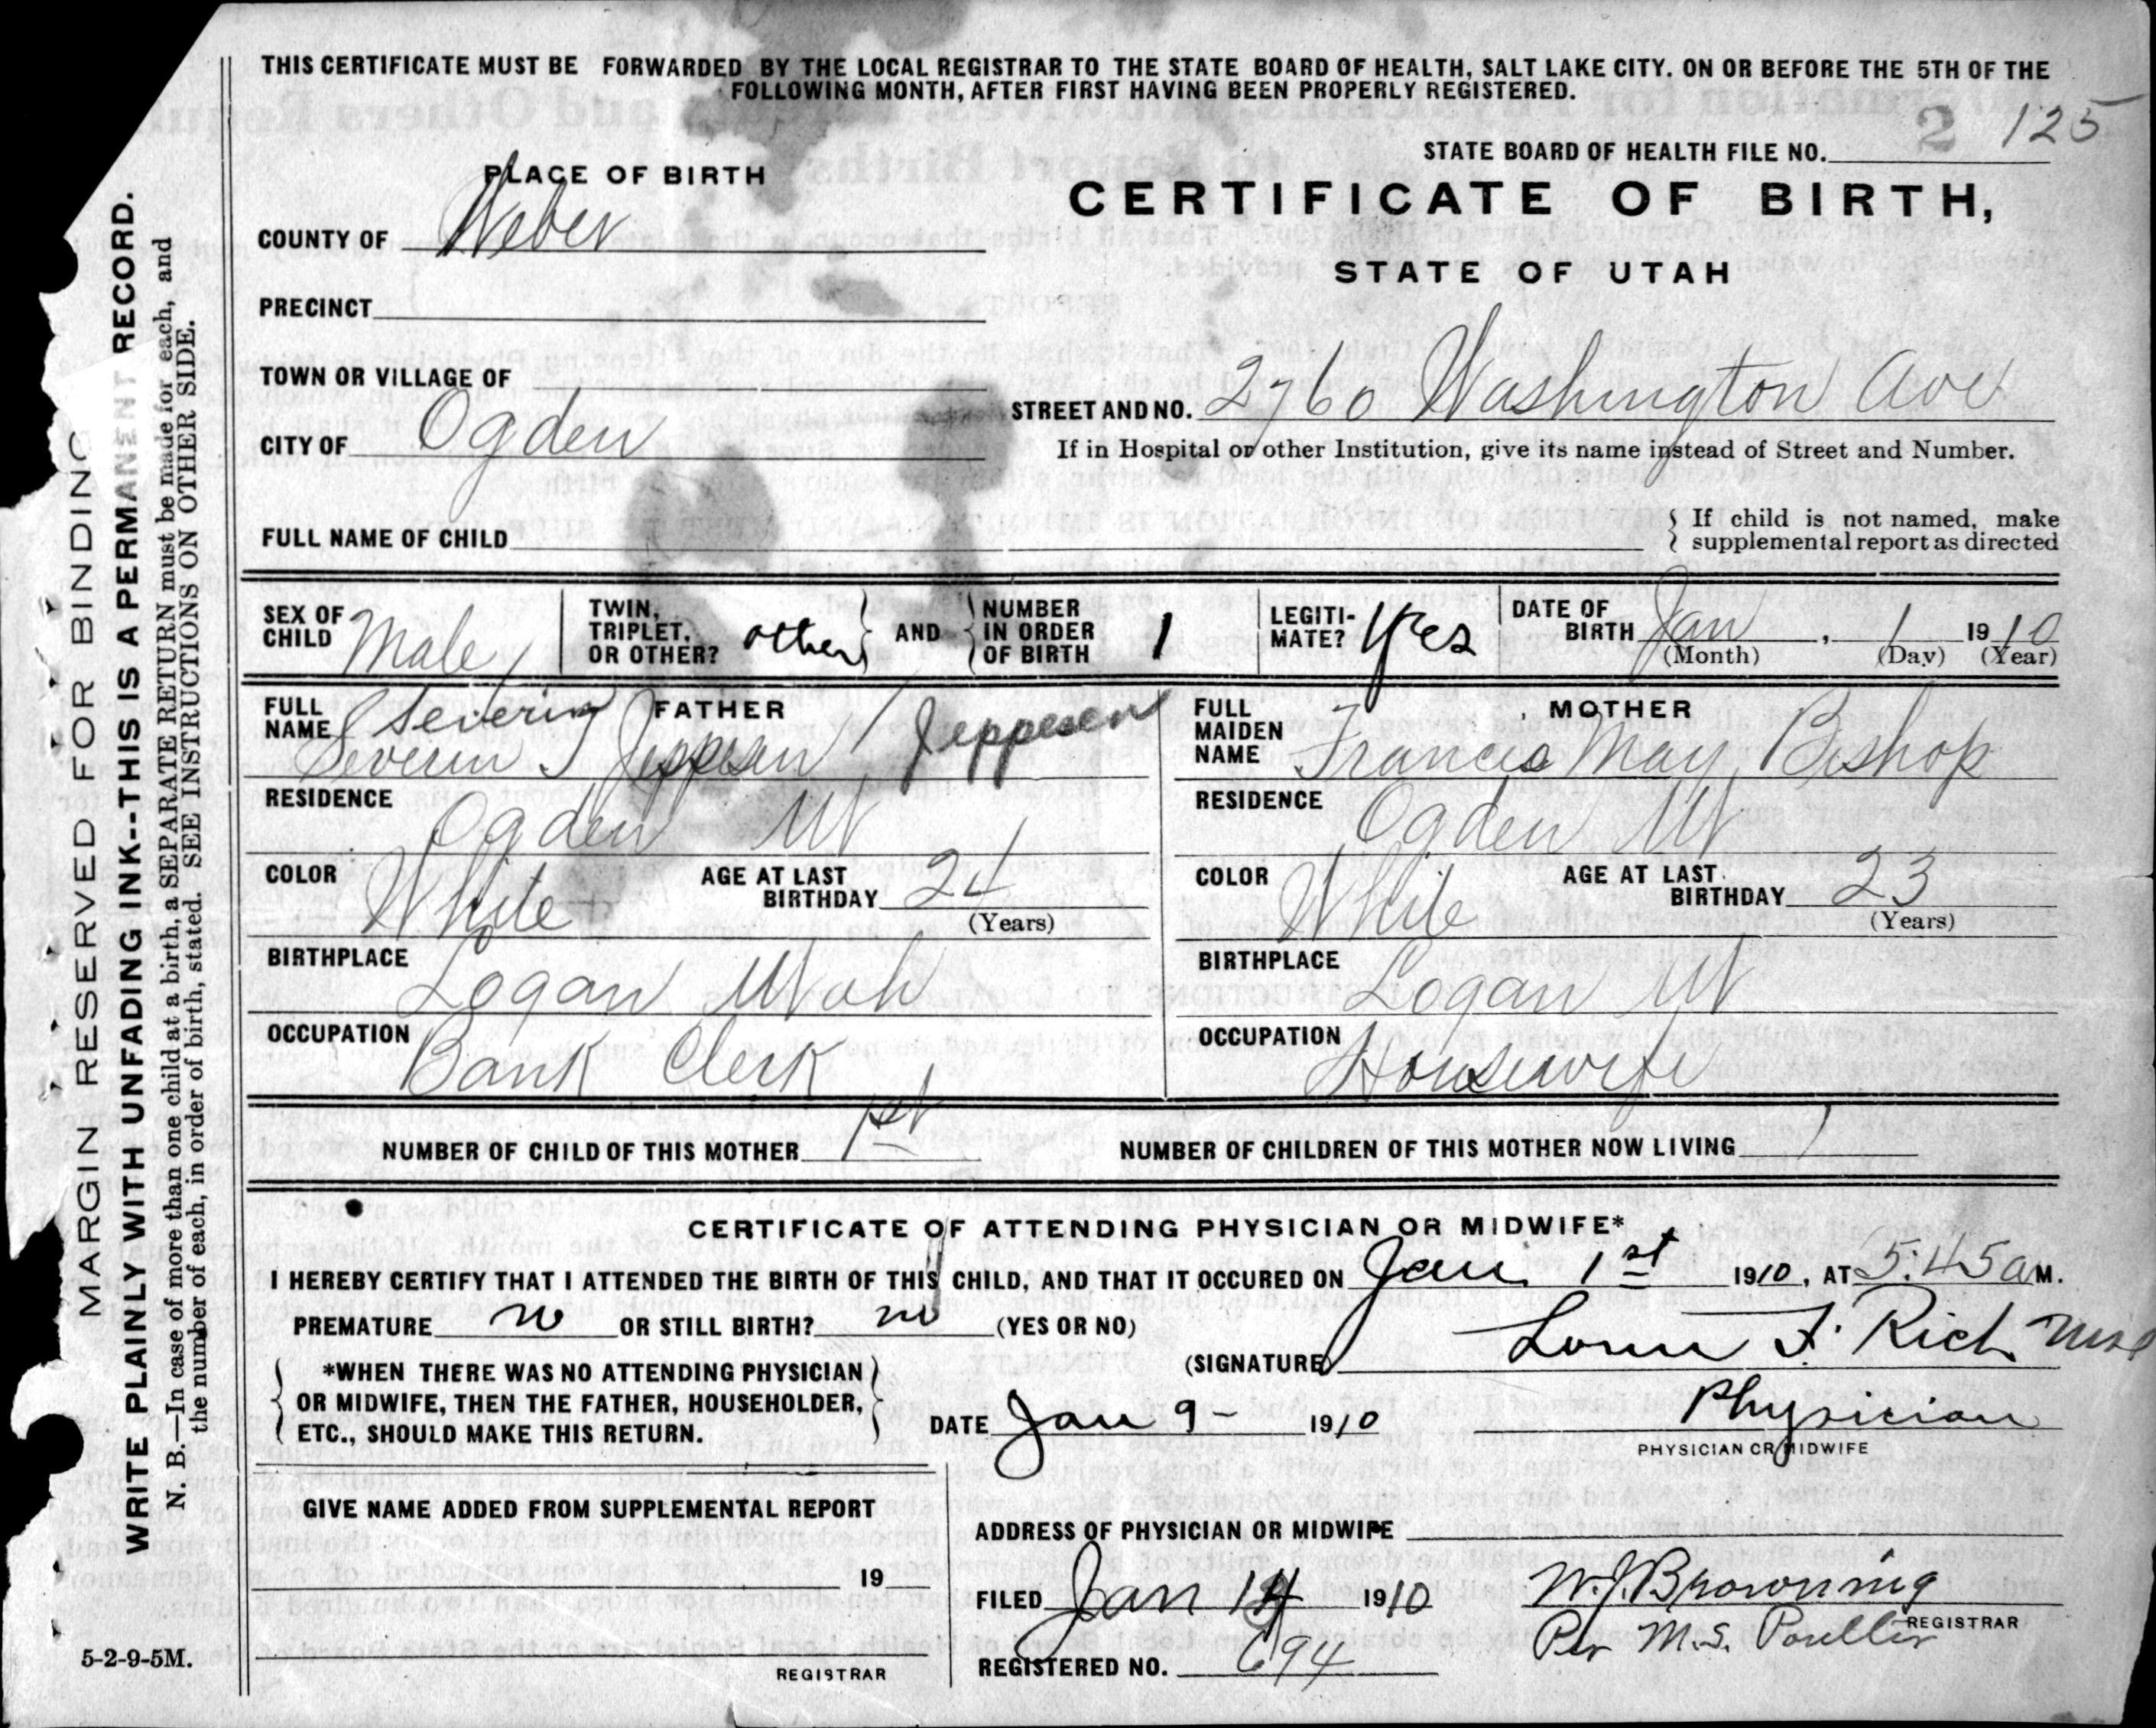 THIS CERTIFICATE MUST BE FORWARDED BY THE LOCAL REGISTRAR TO THE STATE BOARD OF HEALTH, SALT LAKE CITY. ON OR BEFORE THE 5TH OF THE
FOLLOWING MONTH, AFTER FIRST HAVING BEEN PROPERLY REGISTERED.
2 125
STATE BOARD OF HEALTH FILE NO.
PLACE OF BIRTH
CERTIFICATE OF BIRTH,
STATE OF UTAH
COUNTY OF Weber
PRECINCT
TOWN OR VILLAGE OF
CITY OF Ogden
STREET AND NO. 2760 Washington Ave
If in Hospital or other Institution, give its name instead of Street and Number.
FULL NAME OF CHILD
{ If child is not named, make
supplemental report as directed
SEX OF CHILD Male
TWIN, TRIPLET, OR OTHER? other } AND { NUMBER IN ORDER OF BIRTH 1
LEGITIMATE? Yes
DATE OF BIRTH Jan, 1 1910
(Month) (Day) (Year)
FATHER
FULL NAME Severin J Jeppesen
Severin J Jeppesen
RESIDENCE Ogden Ut
COLOR White AGE AT LAST BIRTHDAY 24
(Years)
BIRTHPLACE Logan Utah
OCCUPATION Bank Clerk
MOTHER
FULL MAIDEN NAME Francis May Bishop
RESIDENCE Ogden Ut
COLOR White AGE AT LAST BIRTHDAY 23
(Years)
BIRTHPLACE Logan Ut
OCCUPATION Housewife
NUMBER OF CHILD OF THIS MOTHER 1st
NUMBER OF CHILDREN OF THIS MOTHER NOW LIVING 1
CERTIFICATE OF ATTENDING PHYSICIAN OR MIDWIFE*
I HEREBY CERTIFY THAT I ATTENDED THE BIRTH OF THIS CHILD, AND THAT IT OCCURED ON Jan. 1st 1910, AT 5:45 a M.
PREMATURE no OR STILL BIRTH? no (YES OR NO)
*WHEN THERE WAS NO ATTENDING PHYSICIAN
OR MIDWIFE, THEN THE FATHER, HOUSEHOLDER,
ETC., SHOULD MAKE THIS RETURN.
(SIGNATURE) F. Rich
DATE Jan 9 - 1910
Physician
PHYSICIAN OR MIDWIFE
GIVE NAME ADDED FROM SUPPLEMENTAL REPORT
19
REGISTRAR
ADDRESS OF PHYSICIAN OR MIDWIFE
FILED Jan 14 1910
W.J. Browning
REGISTRAR
Per M.S.
REGISTERED NO. 694
5-2-9-5M.
MARGIN RESERVED FOR BINDING
WRITE PLAINLY WITH UNFADING INK--THIS IS A PERMANENT RECORD.
N. B.—In case of more than one child at a birth, a SEPARATE RETURN must be made for each, and
the number of each, in order of birth, stated. SEE INSTRUCTIONS ON OTHER SIDE.